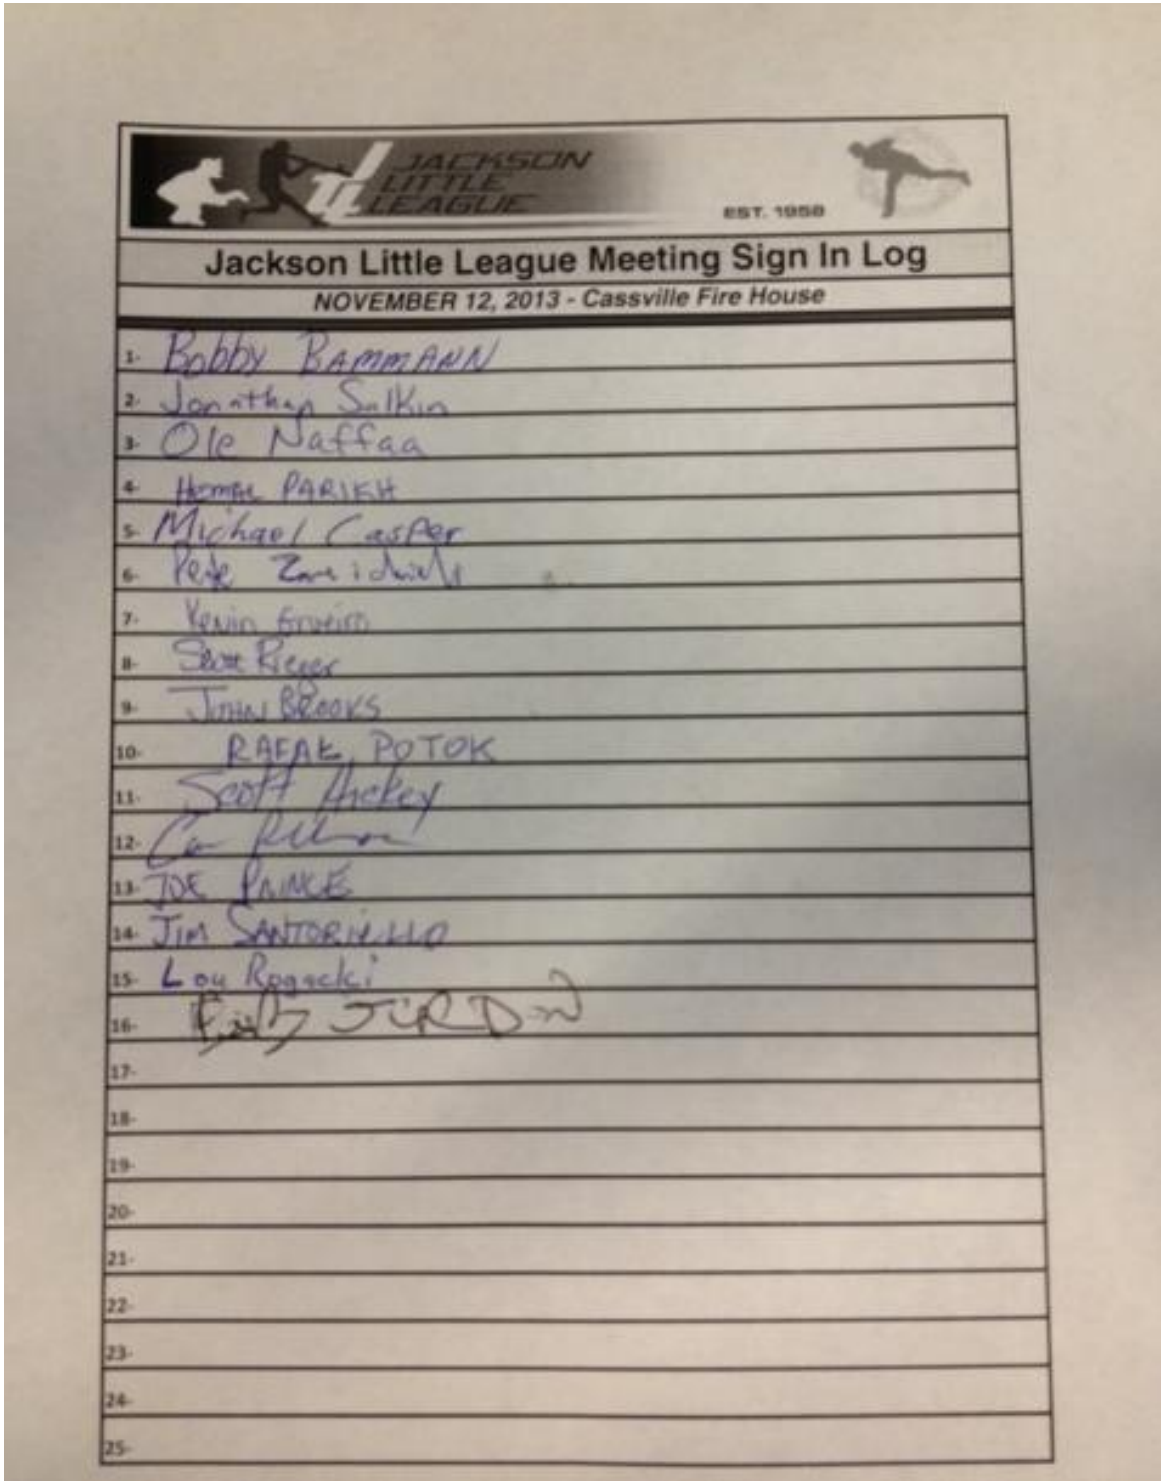 JACKSON
LITTLE
LEAGUE
EST. 1958
Jackson Little League Meeting Sign In Log
NOVEMBER 12, 2013 - Cassville Fire House
1- Bobby BAMMANN
2- Jonathan Salkin
3- Ole Naffaa
4- PARIKH
5- Michael Casper
6- Pete
7- Kevin
8- Scott Rieger
9- JOHN BROOKS
10- RAFAŁ POTOK
11- Scott Hickey
12-
13- JOE PRINCE
14- JIM SANTORIELLO
15- Lou Rogacki
16- JORDON
17-
18-
19-
20-
21-
22-
23-
24-
25-